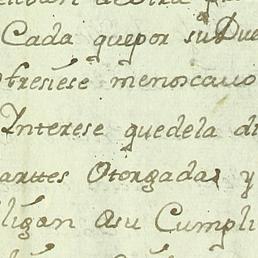 Cada que por su Due
ofresiese menoscavo
Interese que de la di
partes Otorgadas y
ligan a su Cumpli